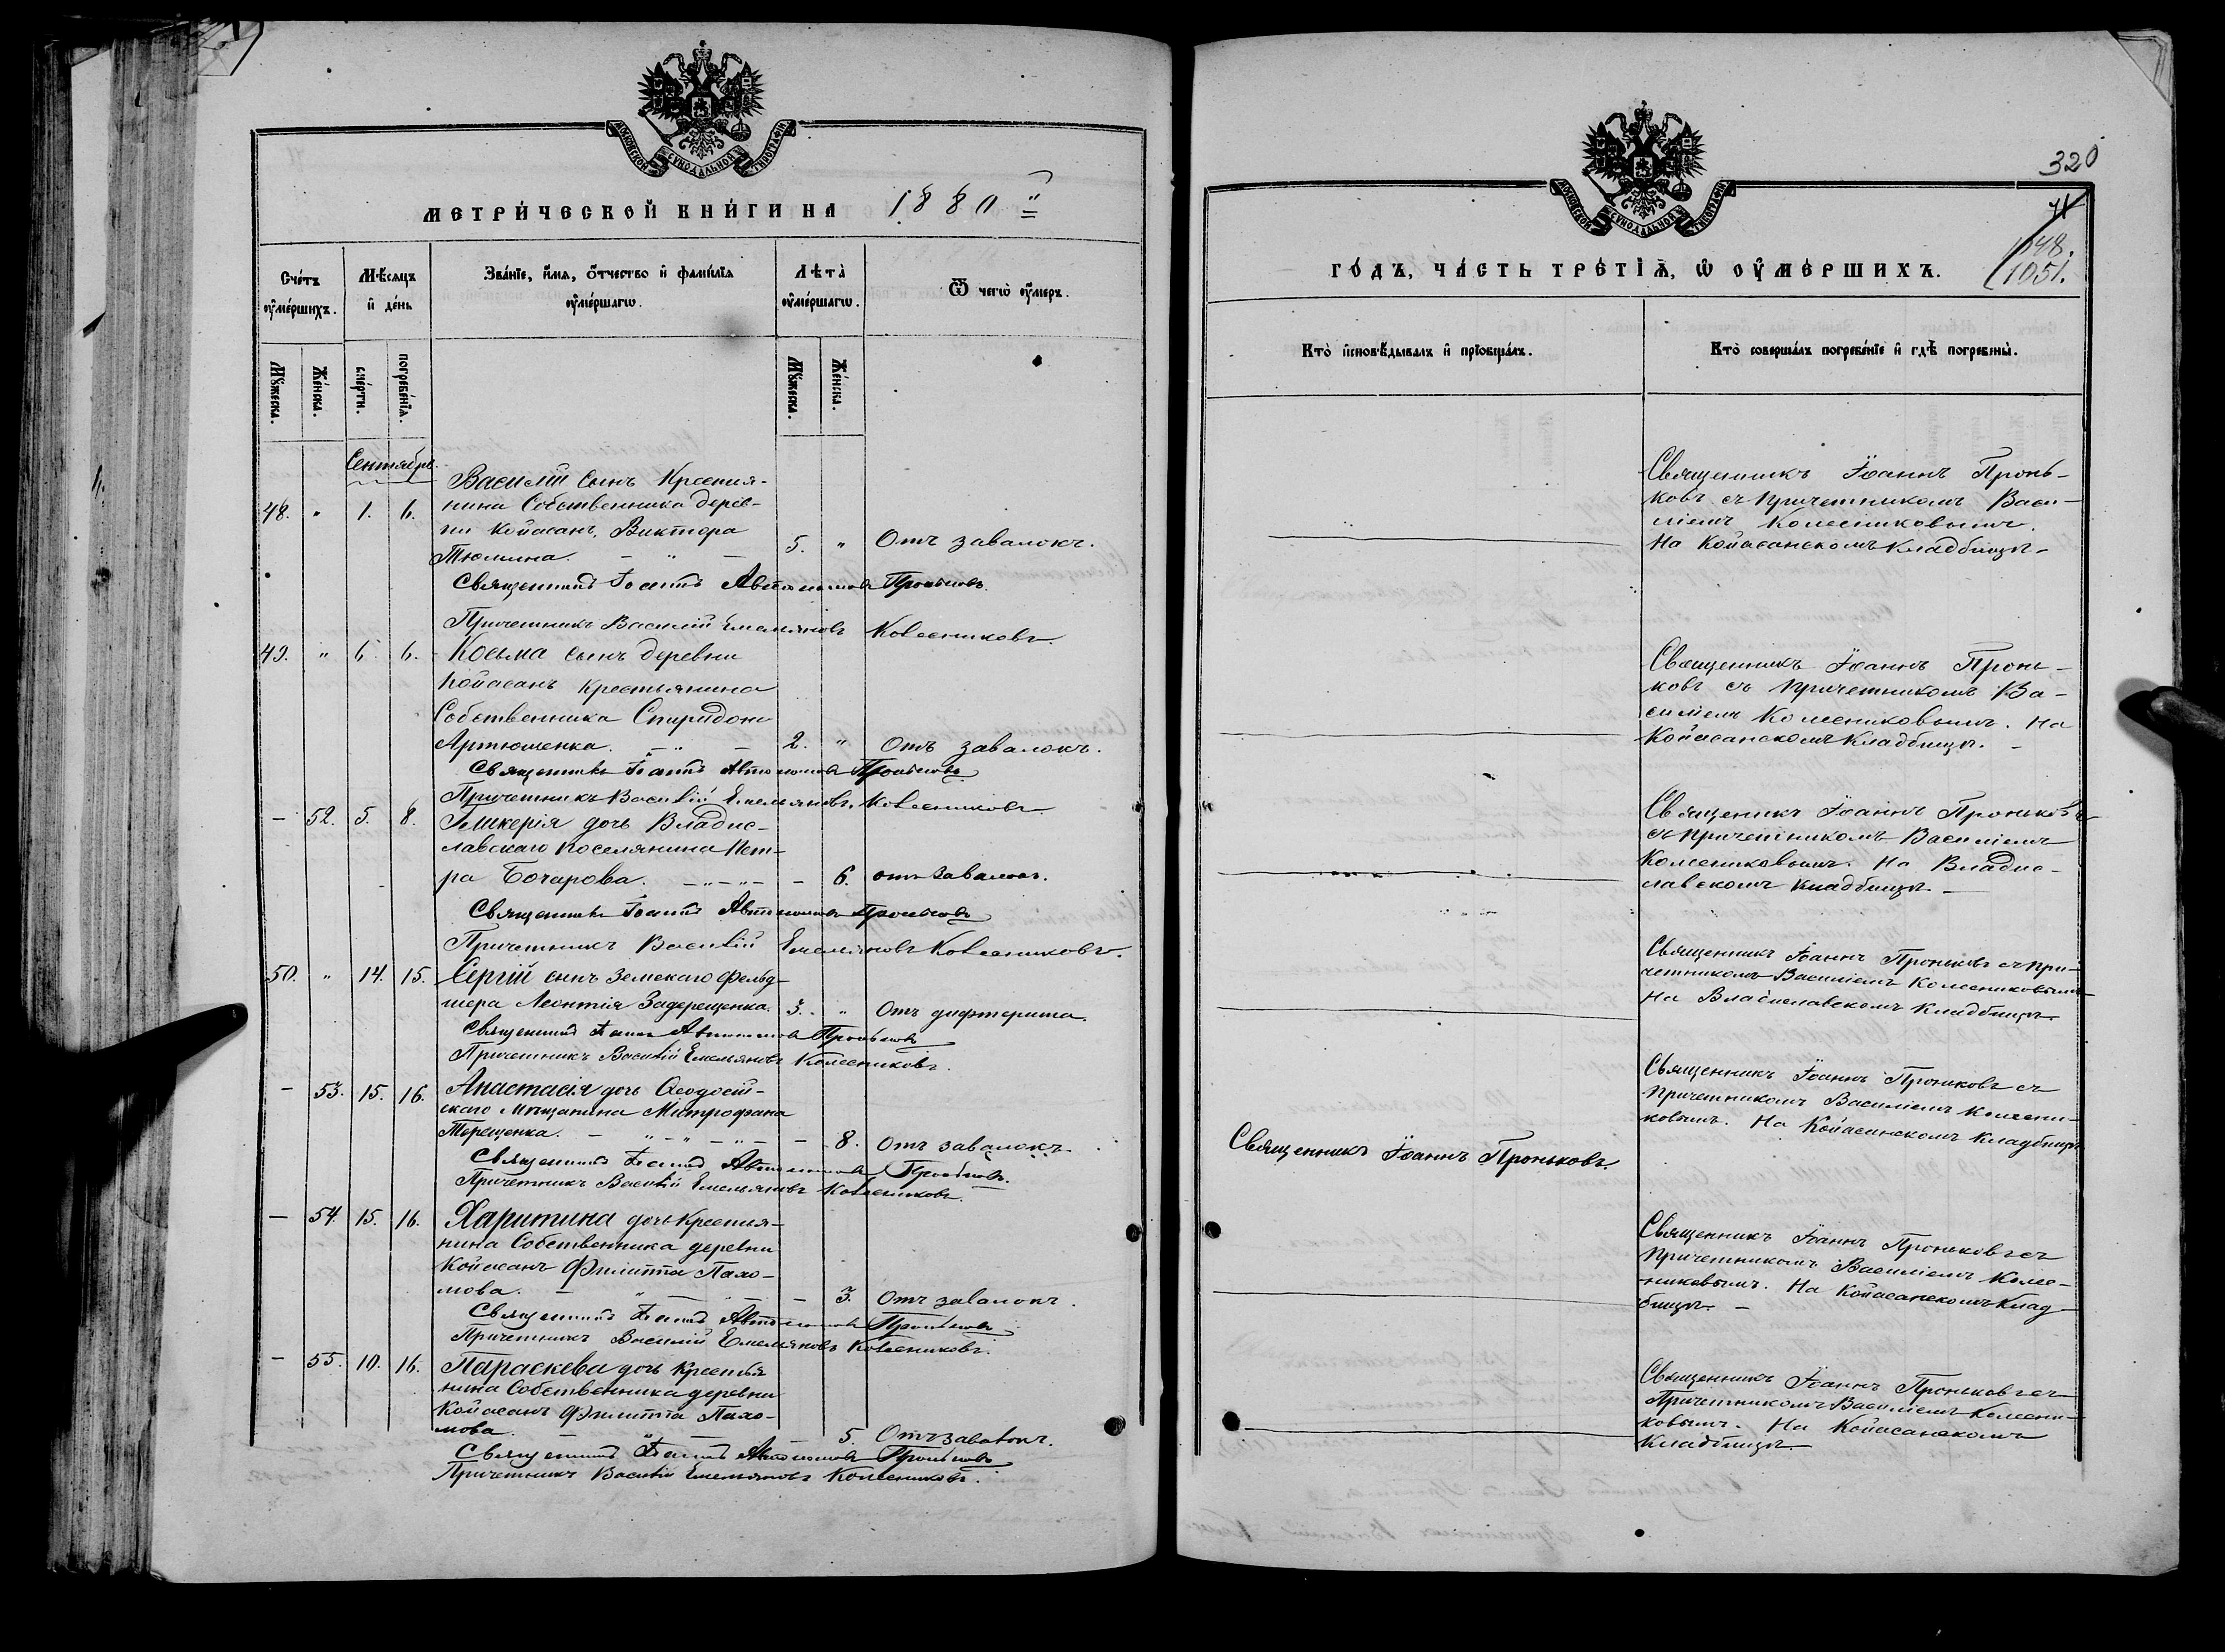 МОСКОВСКОЙ СѴНОДАЛЬНОЙ ТИПОГРАФІИ
МЕТРИ́ЧЕСКОЙ КНИ́ГИ НА 1880 й
Сче́тъ ᲂу҆ме́ршихъ.
Мѣ́сяцъ и҆ де́нь
Зва́нїе, и҆́мѧ, ѻ҆́тчество и҆ фамі́лїѧ ᲂу҆ме́ршагѡ.
Лѣ́та ᲂу҆ме́ршагѡ.
Ѿ чегѡ̀ ᲂу҆́меръ.
Мꙋ́жеска.
Же́нска.
сме́рти.
погребе́нїѧ.
Мꙋ́жеска.
Же́нска.
Сентябрь
Василій сынъ Крестья-
48. " 1. 6. нина Собственника дерев-
ни Койасанъ, Виктора
Тюмина. — " — 5. " Отъ завалокъ.
Священникъ Іоаннъ Автономовъ Проньковъ.
Причетникъ Василій Емельяновъ Колесниковъ.
49. " 6. 6. Косьма сынъ деревни
Койасанъ Крестьянина
Собственника Спиридона
Артюшенка. — " — 2. " Отъ завалокъ.
Священникъ Іоаннъ Автономовъ Проньковъ
Причетникъ Василій Емельяновъ Колесниковъ
— 52. 5. 8. Гликерія дочь Владис-
лавскаго Поселянина Пет-
ра Бочарова. — " — " — — 6. отъ завалокъ.
Священникъ Іоаннъ Автономовъ Проньковъ
Причетникъ Василій Емельяновъ Колесниковъ.
50. " 14. 15. Сергій сынъ Земскаго фельд-
шера Леонтія Задерещенка. 3. " Отъ дифтерита.
Священникъ Іоаннъ Автономовъ Проньковъ
Причетникъ Василій Емельяновъ Колесниковъ.
— 53. 15. 16. Анастасія дочь Ѳеодосій-
скаго Мѣщанина Митрофана
Терещенка. — " — " — " — — 8. Отъ завалокъ.
Священникъ Іоаннъ Автономовъ Проньковъ.
Причетникъ Василій Емельяновъ Колесниковъ.
— 54. 15. 16. Харитина дочь Крестья-
нина Собственника деревни
Койасанъ Филиппа Пахо-
мова. — " — " — — 3. Отъ завалокъ.
Священникъ Іоаннъ Автономовъ Проньковъ
Причетникъ Василій Емельяновъ Колесниковъ.
— 55. 10. 16. Параскева дочь Крестья
нина Собственника деревни
Койасанъ Филиппа Пахо-
мова. — " — — 5. Отъ завалокъ.
Священникъ Іоаннъ Автономовъ Проньковъ
Причетникъ Василій Емельяновъ Колесниковъ.
МОСКОВСКОЙ СѴНОДАЛЬНОЙ ТИПОГРАФІИ
320
1048.
1051.
ГО́ДЪ, ЧА́СТЬ ТРЕ́ТЇѦ, Ѡ ОУ҆МЕ́РШИХЪ.
Кто̀ и҆сповѣ́дывалъ и҆ прїобща́лъ.
Кто̀ соверша́лъ погребе́нїе и҆ гдѣ̀ погребены̀.
Священникъ Іоаннъ Пронь-
ковъ съ причетникомъ Васи-
ліемъ Колесниковымъ.
На Койасанскомъ Кладбищѣ —
Священникъ Іоаннъ Пронь-
ковъ съ причетникомъ Ва-
силіемъ Колесниковымъ. На
Койасанскомъ Кладбищѣ. —
Священикъ Іоаннъ Проньковъ
съ причетникомъ Василіемъ
Колесниковымъ. На Владис-
лавскомъ Кладбищѣ. —
Священникъ Іоаннъ Проньковъ съ при-
четникомъ Василіемъ Колесниковымъ
На Владиславскомъ Кладбищѣ.
Священникъ Іоаннъ Проньковъ съ
Причетникомъ Василіемъ Колесни-
ковымъ. На Койасанскомъ Кладбищѣ
Священникъ Іоаннъ Проньковъ.
Священникъ Іоаннъ Проньковъ съ
Причетникомъ Василіемъ Колес-
никовымъ. На Койасанскомъ Клад
бищѣ. —
Священникъ Іоаннъ Проньковъ съ
Причетникомъ Василіемъ Колесни-
ковымъ. На Койасанскомъ
Кладбищѣ —